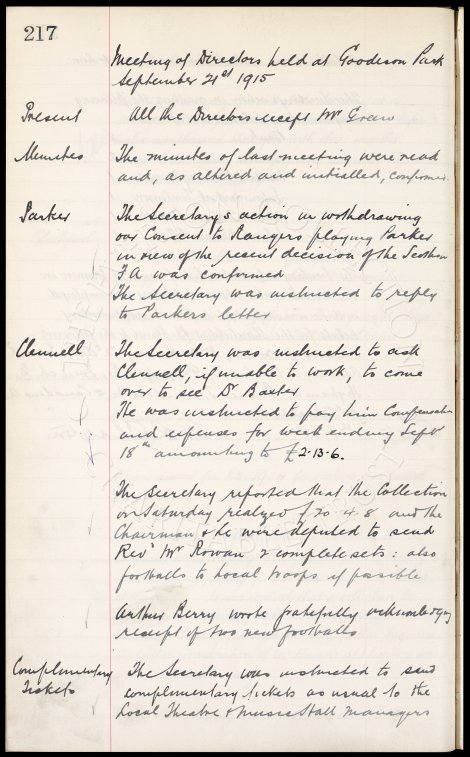 217
Meeting of Directors held at Goodison Park
September 21st 1915
Present All the Directors except Mr Green
Minutes The minutes of last meeting were read
and, as altered and initialled, confirmed.
Parker The Secretary's action in withdrawing
our Consent to Rangers playing Parker
in view of the recent decision of the Scottish
F A was confirmed
The Secretary was instructed to reply
to Parkers letter
Clennell The Secretary was instructed to ask
Clennell, if unable to work, to come
over to see Dr Baxter
He was instructed to pay him Compensation
and expenses for week ending Sept
18th amounting to £2-13-6.
The Secretary reported that the Collection
on Saturday realized £20 4 8 and the
Chairman & he were deputed to send
Revd Mr Rowan 2 complete sets: also
footballs to Local Troops if possible
Arthur Berry wrote gratefully acknowledging
receipt of two new footballs
Complimentary The Secretary was instructed to send
Tickets complimentary tickets as usual to the
Local Theatre & Music Hall Managers